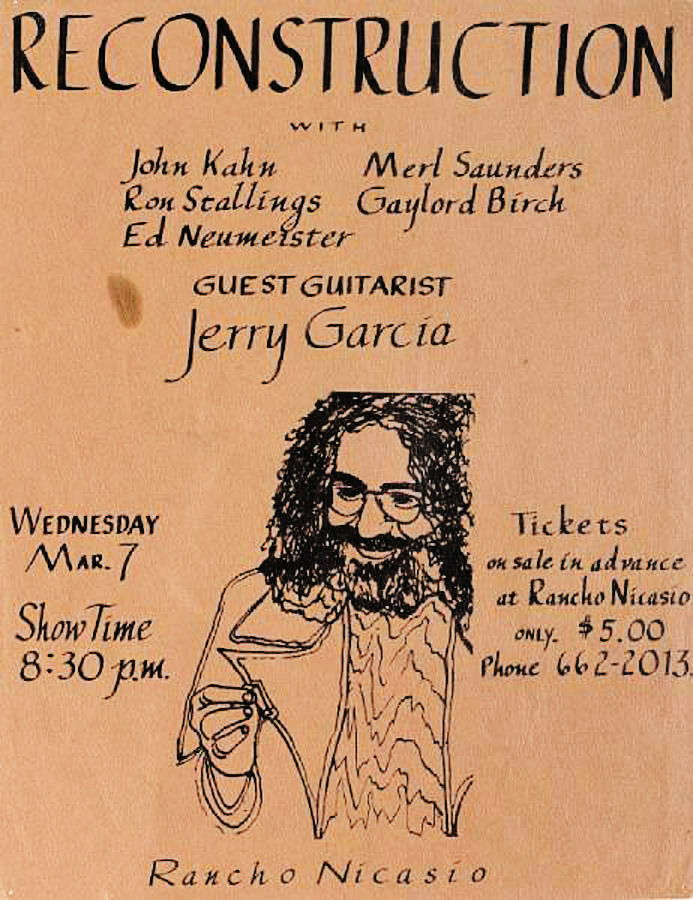 RECONSTRUCTION
WITH
John Kahn Merl Saunders
Ron Stallings Gaylord Birch
Ed Neumeister
GUEST GUITARIST
Jerry Garcia
WEDNESDAY
MAR. 7
Show Time
8:30 p.m.
Tickets
on sale in advance
at Rancho Nicasio
ONLY. $5.00
Phone 662-2013.
Rancho Nicasio